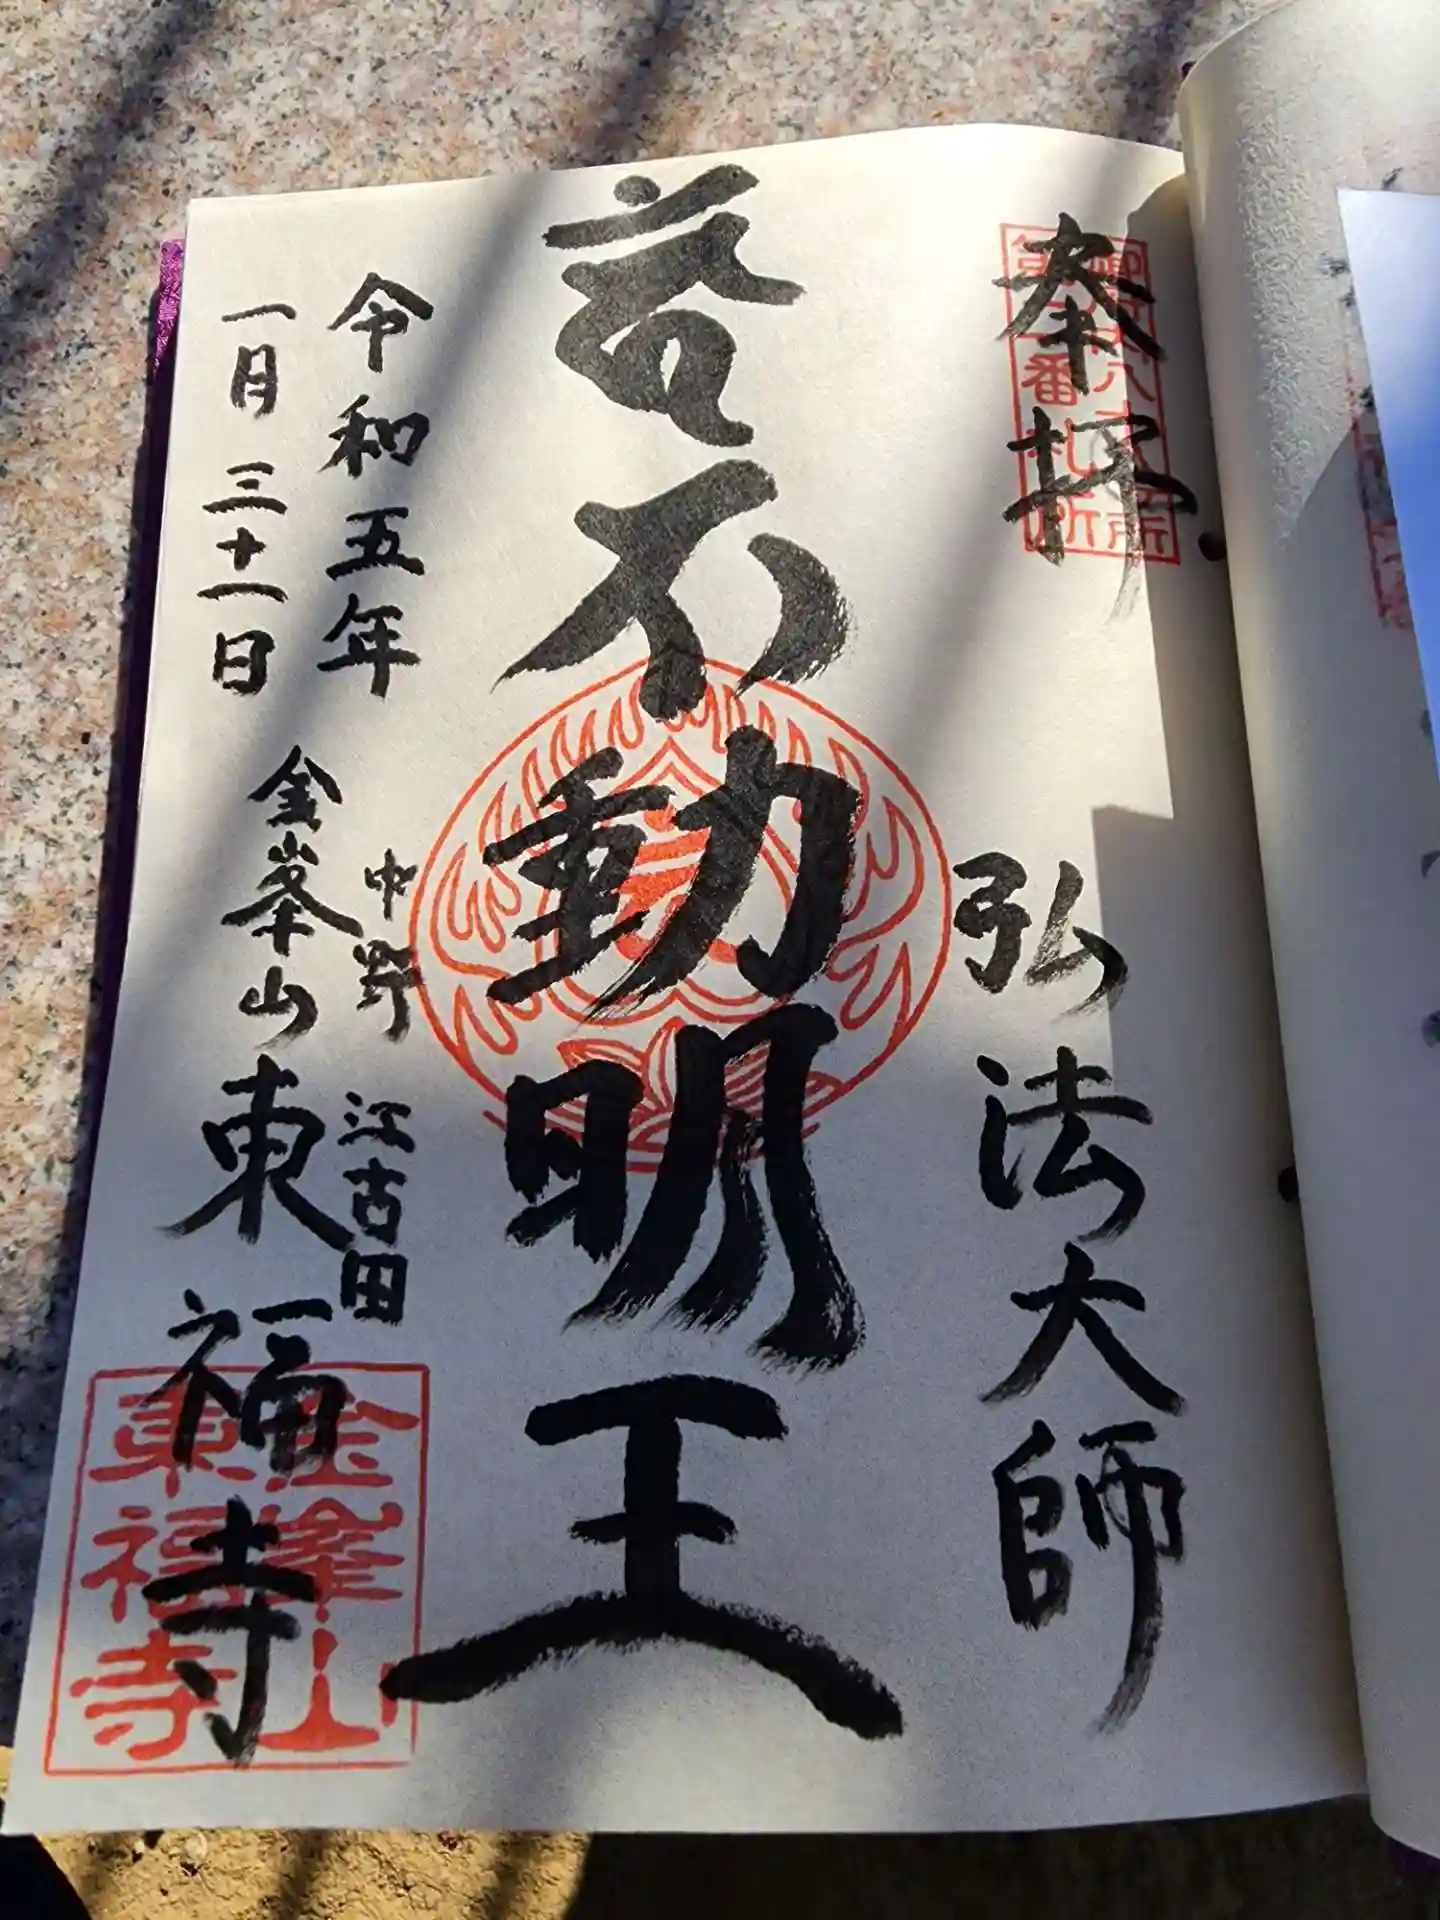 奉拝
番札所
弘法大師
不動明王
令和五年
一月三十一日
中野 江古田
金峯山 東福寺
金峯山
東福寺